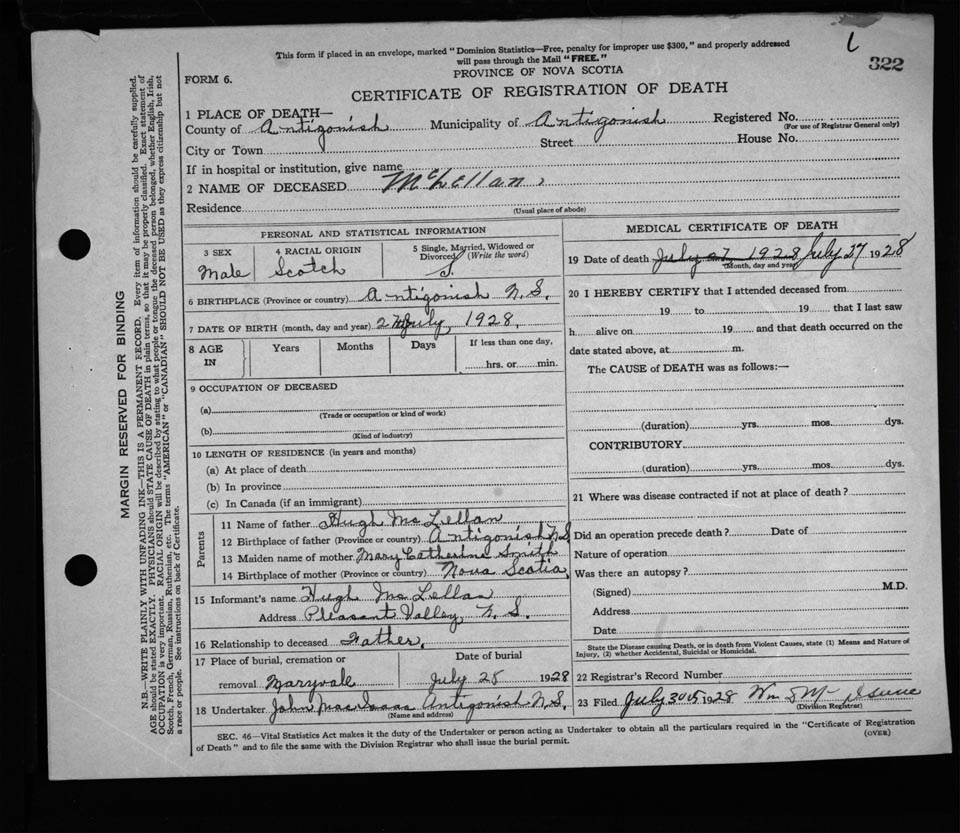 This form if placed in an envelope, marked "Dominion Statistics—Free, penalty for improper use $300," and properly addressed
will pass through the Mail "FREE."
322
FORM 6.
PROVINCE OF NOVA SCOTIA
CERTIFICATE OF REGISTRATION OF DEATH
1 PLACE OF DEATH—
County of Antigonish Municipality of Antigonish Registered No.
(For use of Registrar General only)
City or Town Street House No.
If in hospital or institution, give name
2 NAME OF DECEASED McLellan
Residence
(Usual place of abode)
PERSONAL AND STATISTICAL INFORMATION
3 SEX 4 RACIAL ORIGIN 5 Single, Married, Widowed or
Divorced (Write the word)
Male Scotch S.
6 BIRTHPLACE (Province or country) Antigonish N.S.
7 DATE OF BIRTH (month, day and year) July 1928.
8 AGE IN Years Months Days If less than one day,
hrs. or min.
9 OCCUPATION OF DECEASED
(a)
(Trade or occupation or kind of work)
(b)
(Kind of industry)
10 LENGTH OF RESIDENCE (in years and months)
(a) At place of death
(b) In province
(c) In Canada (if an immigrant)
Parents
11 Name of father Hugh McLellan
12 Birthplace of father (Province or country) Antigonish N.S
13 Maiden name of mother Mary Catherine Smith
14 Birthplace of mother (Province or country) Nova Scotia,
15 Informant's name Hugh McLellan
Address Pleasant Valley N.S.
16 Relationship to deceased Father.
17 Place of burial, cremation or Date of burial
removal Maryvale July 28 1928
18 Undertaker John MacIsaac Antigonish N.S.
(Name and address)
MEDICAL CERTIFICATE OF DEATH
19 Date of death July 27 1928 July 27 1928
(Month, day and year)
20 I HEREBY CERTIFY that I attended deceased from
19 to 19 that I last saw
h alive on 19 and that death occurred on the
date stated above, at m.
The CAUSE of DEATH was as follows:—
(duration) yrs. mos. dys.
CONTRIBUTORY
(duration) yrs. mos. dys.
21 Where was disease contracted if not at place of death?
Did an operation precede death? Date of
Nature of operation
Was there an autopsy?
(Signed) M.D.
Address
Date
State the Disease causing Death, or in death from Violent Causes, state (1) Means and Nature of
Injury, (2) whether Accidental, Suicidal or Homicidal.
22 Registrar's Record Number
23 Filed July 30th 1928 Wm
(Division Registrar)
SEC. 46—Vital Statistics Act makes it the duty of the Undertaker or person acting as Undertaker to obtain all the particulars required in the "Certificate of Registration
of Death" and to file the same with the Division Registrar who shall issue the burial permit.
(OVER)
MARGIN RESERVED FOR BINDING
N.B.—WRITE PLAINLY WITH UNFADING INK—THIS IS A PERMANENT RECORD. Every item of information should be carefully supplied.
AGE should be stated EXACTLY. PHYSICIANS should STATE CAUSE OF DEATH in plain terms, so that it may be properly classified. Exact statement of
OCCUPATION is very important. RACIAL ORIGIN will be described by stating to what people or tongue the deceased person belonged, whether English, Irish,
Scotch, French, German, Russian, Ruthenian, etc. The terms "AMERICAN" or "CANADIAN" SHOULD NOT BE USED as they express citizenship but not
a race or people. See instructions on back of Certificate.